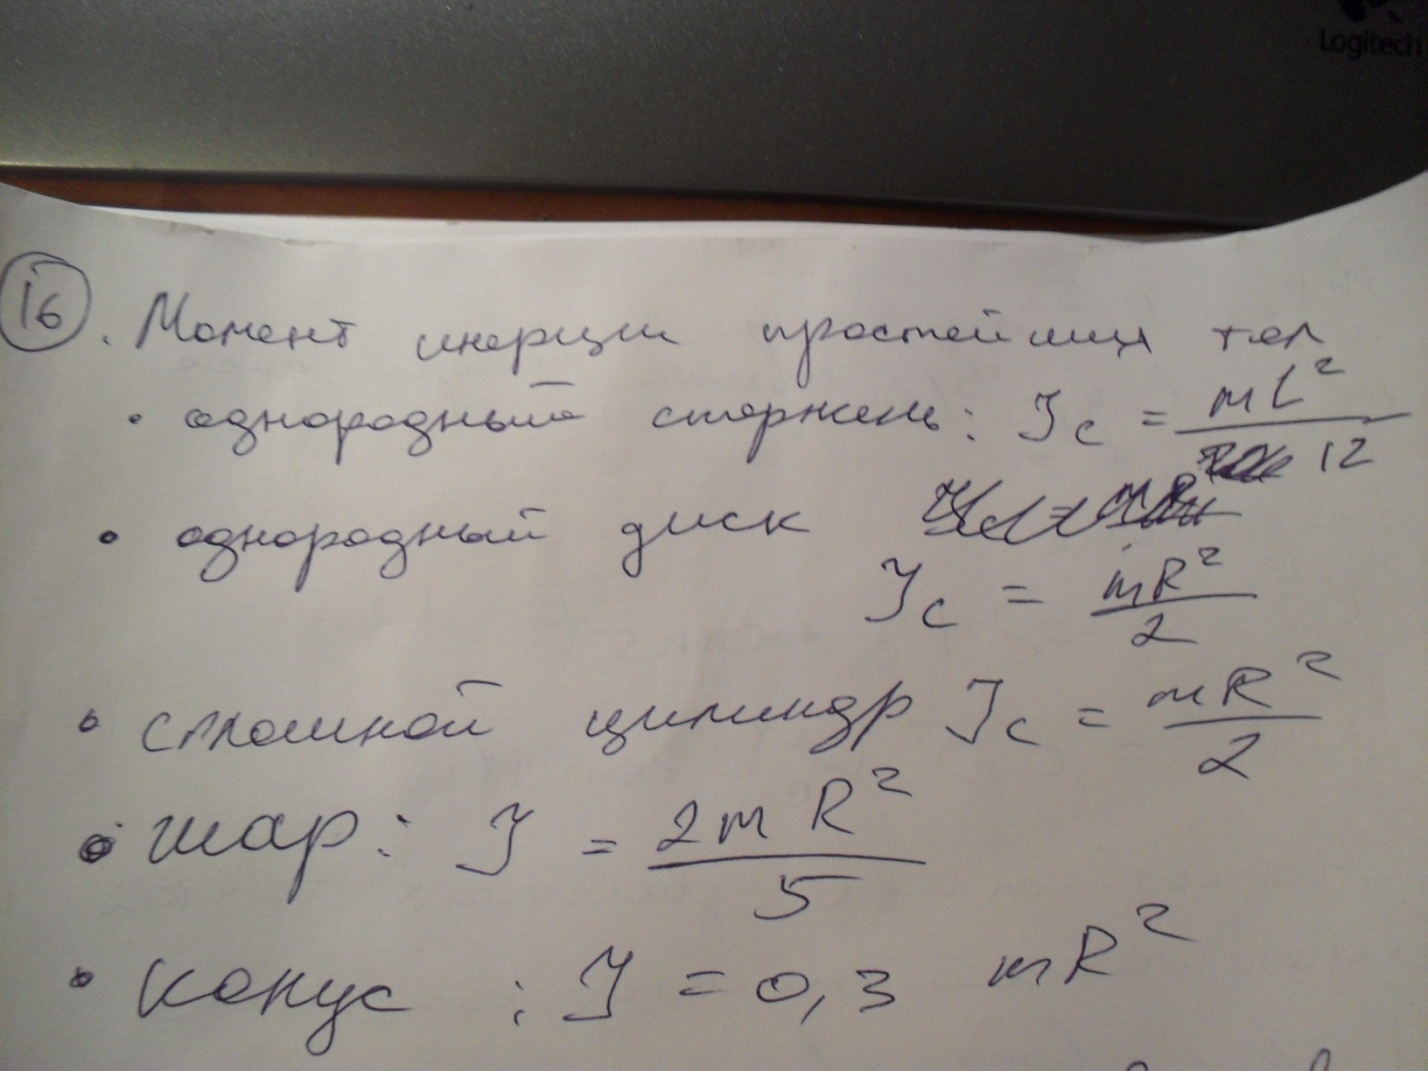 Logitech
16. Момент инерции простейших тел
• однородный стержень: Jc = mL²/12
• однородный диск
Jc = mR²/2
• сплошной цилиндр Jc = mR²/2
• шар: J = 2mR²/5
• конус : J = 0,3 mR²